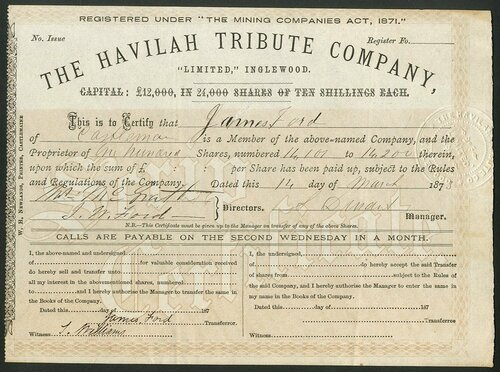 REGISTERED UNDER "THE MINING COMPANIES ACT, 1871."
No. Issue Register Fo.
THE HAVILAH TRIBUTE COMPANY,
"LIMITED," INGLEWOOD.
CAPITAL: £12,000, IN 24,000 SHARES OF TEN SHILLINGS EACH.
This is to Certify that James Ford
of is a Member of the above-named Company, and the
Proprietor of One Hundred Shares, numbered 14,101 to 14,200 therein,
upon which the sum of £ per Share has been paid up, subject to the Rules
and Regulations of the Company. Dated this 14 day of March 1873
Directors.
Manager.
N.B.—This Certificate must be given up to the Manager on transfer of any of the above Shares.
CALLS ARE PAYABLE ON THE SECOND WEDNESDAY IN A MONTH.
I, the above-named and undersigned
of for valuable consideration received
do hereby sell and transfer unto
all my interest in the abovementioned shares, numbered
to and I hereby authorise the Manager to transfer the same in
the Books of the Company.
Dated this day of 187
James Ford Transferror.
Witness S. Williams
I, the undersigned,
of do hereby accept the said Transfer
of shares from subject to the Rules of
the said Company, and I hereby authorise the Manager to enter the same in
my name in the Books of the Company.
Dated this day of 187
Transferree.
Witness
W. H. NEWLANDS, PRINTER, CASTLEMAINE